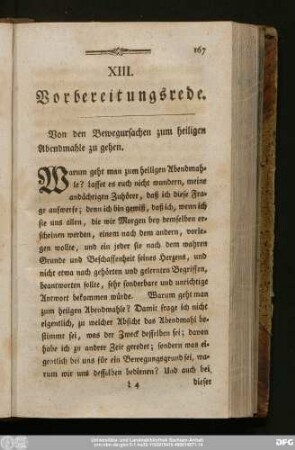 167
XIII.
Vorbereitungsrede.
Von den Bewegursachen zum heiligen
Abendmahle zu gehen.
Warum geht man zum heiligen Abendmah-
le? lasset es euch nicht wundern, meine
andächtigen Zuhörer, daß ich diese Fra-
ge aufwerfe; denn ich bin gewiß, daß ich, wenn ich
sie uns allen, die wir Morgen bey demselben er-
scheinen werden, einem nach dem andern, vorle-
gen wollte, und ein jeder sie nach dem wahren
Grunde und Beschaffenheit seines Herzens, und
nicht etwa nach gehörten und gelernten Begriffen,
beantworten sollte, sehr sonderbare und unrichtige
Antwort bekommen würde. Warum geht man
zum heiligen Abendmahle? Damit frage ich nicht
eigentlich, zu welcher Absicht das Abendmahl be-
stimmt sei, was der Zweck desselben sei; davon
habe ich zu andrer Zeit geredet; sondern was ei-
gentlich bei uns für ein Bewegungsgrund sei, wa-
rum wir uns desselben bedienen? Und auch bei
L 4
dieser
Universitäts- und Landesbibliothek Sachsen-Anhalt